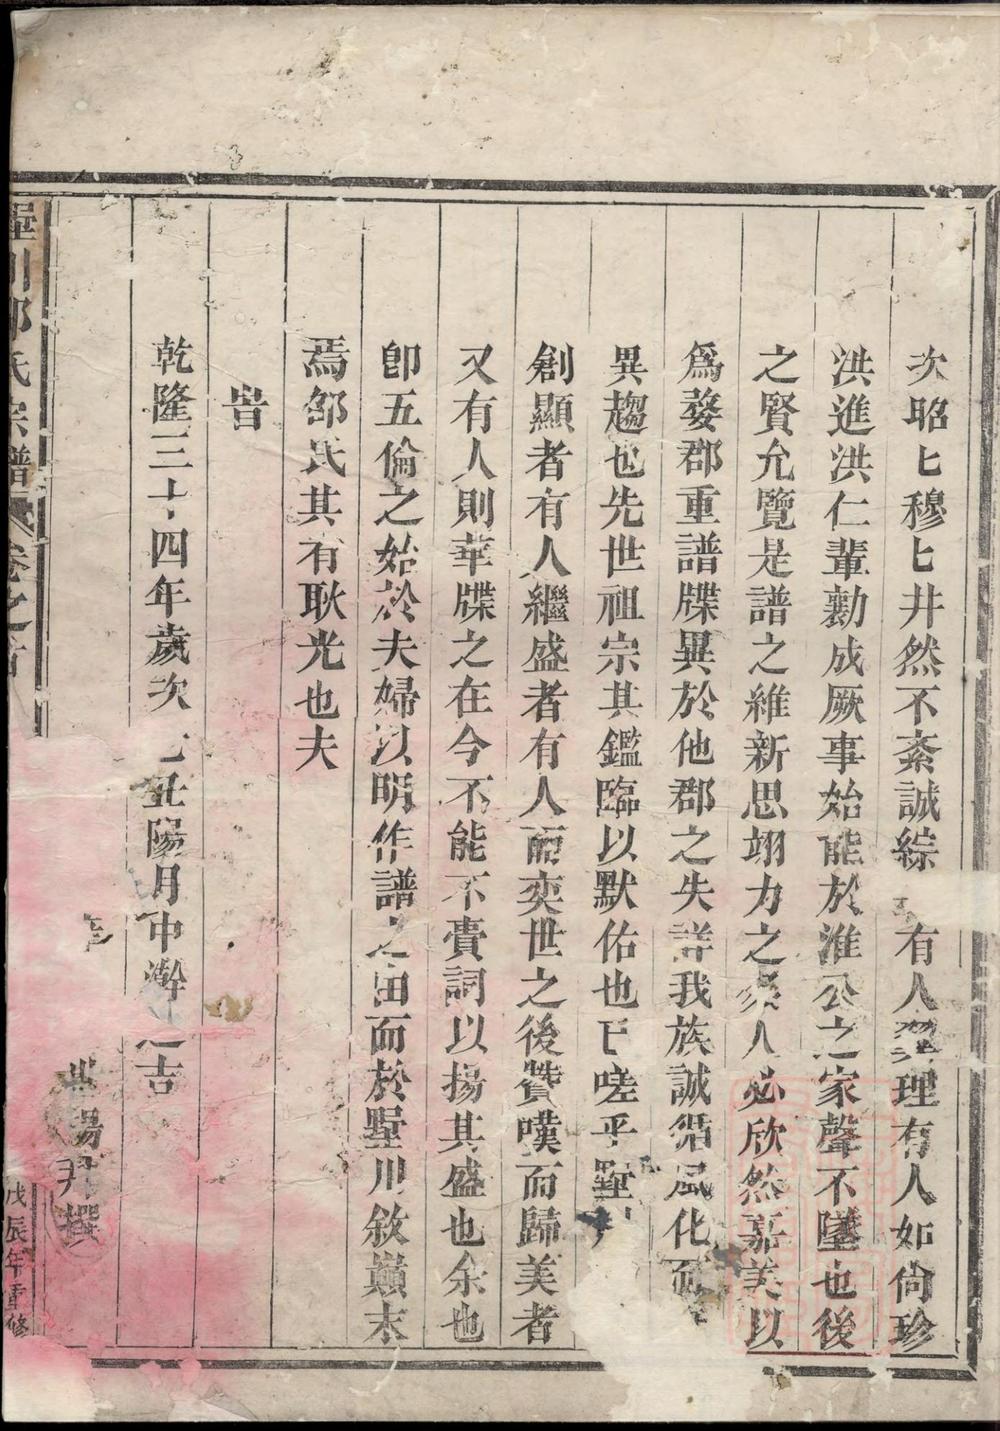 次昭匕穆匕井然不紊誠綜有人理有人如尙珍
洪進洪仁輩勷成厥事始能於淮公之家聲不墜也後
之賢允覽是譜之維新思翊力之人必欣然嘉美以
爲婺郡重譜牒異於他郡之失詳我族誠循風化而
異趨也先世祖宗其鑑臨以默佑也已嗟乎墅
創顯者有人繼盛者有人而奕世之後贊嘆而歸美者
又有人則華牒之在今不能不賣詞以揚其盛也余也
卽五倫之始於夫婦以明作譜之由而於墅川敘巔末
焉邹氏其有耿光也夫
旹
乾隆三十四年歲次己丑陽月中澣之吉
撰
墅川邹氏宗譜卷之首
戊辰年重修